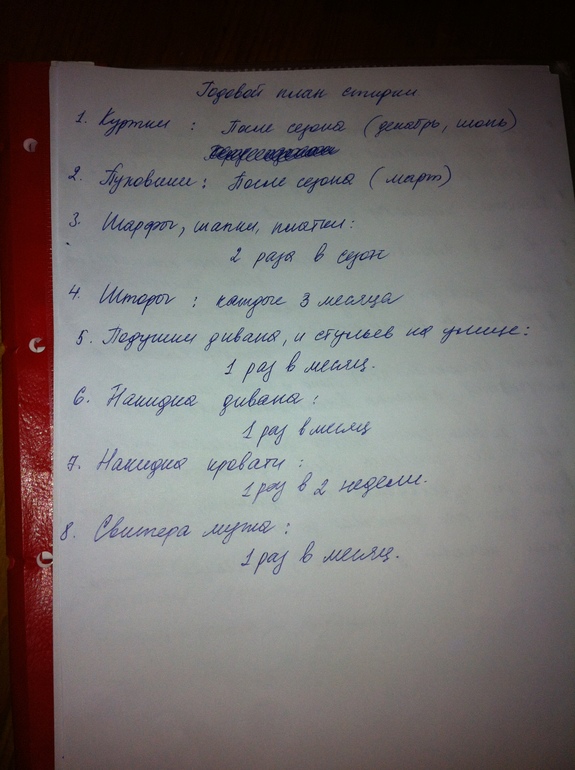 Годовой план стирки
1. Куртки : После сезона (декабрь, июнь)
2. Пуховики : После сезона (март)
3. Шарфы, шапки, платки:
2 раза в сезон
4. Шторы : каждые 3 месяца
5. Подушки дивана, и стульев на улице:
1 раз в месяц.
6. Накидка дивана :
1 раз в месяц
7. Накидка кровати :
1 раз в 2 недели.
8. Свитера мужа :
1 раз в месяц.